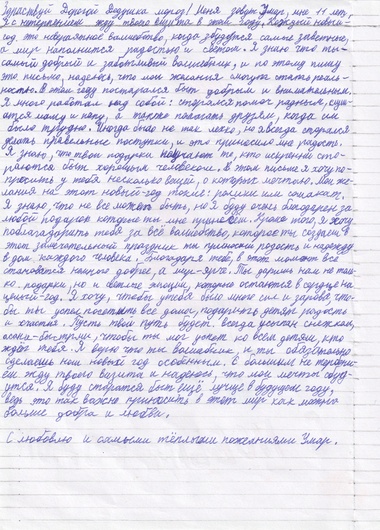 Здраствуй Дорогой Дедушка мороз! Меня зовут Умар, мне 11 лет.
Я с нетерпением жду твоего визита в этом году. Каждый новый-
год это невероятное волшебство, когда збудутся самые заветные,
а мир наполнится радостью и светом. Я знаю что ты-
самый добрый и заботливый волшебник, и по этому пишу
это письмо, надеюсь, что мои желания смогут стать реаль-
ностью. В этом году постарался быть добрым и внимательным.
Я много работал над собой: старался помог родным, слу-
шался маму и папу, а также помогать друзьям, когда им
было трудно. Иногда было не так легко, но я всегда старался
делать правельные поступки, и это приносило мне радость.
Я знаю, что твои подарки получают те, кто искренний ста-
раются быть хорошим человеком. В этом письме я хочу по-
просить у тебя несколько вещей, о которых мечтаю. Мои же-
лания на этот новый-год такие: ролики или самокат.
Я знаю, что не все может быть, но я буду очень благодарен за
любой подарок который ты мне принесёш. Кроме того, я хочу
поблагодарить тебя за всё волшебство, которое ты создаеш в
этот замечательный праздник ты приносиш радость и надежду
в дом каждого человека. Благодаря тебе, в этот момент все
становятся немного добрее, а мир-ярче. Ты даришь нам не толь-
ко подарки, но и светлые эмоции, которые остаются в сердце на
целый-год. Я хочу, чтобы у тебя было много сил и здоровя, что-
бы ты успел посетить все дома, подарить детям радость
и счастья. Пусть твой путь будет всегда усыпан снежком,
а сани-быстрыми, чтобы ты мог успеть ко всем детям, кто
ждёт тебя. Я верю что ты волшебник, и ты обязательно
сделаешь мой новый год особенным. С большим не терпени-
ем жду твоего визита и надеюсь, что мои мечты сбуд-
утся. Я буду стараться быть ещё лучше в будущем году,
ведь это так важно приносить в этот мир как можно
больше добра и любви.
С любовью и самыми тёплыми пожеланиями Умар.